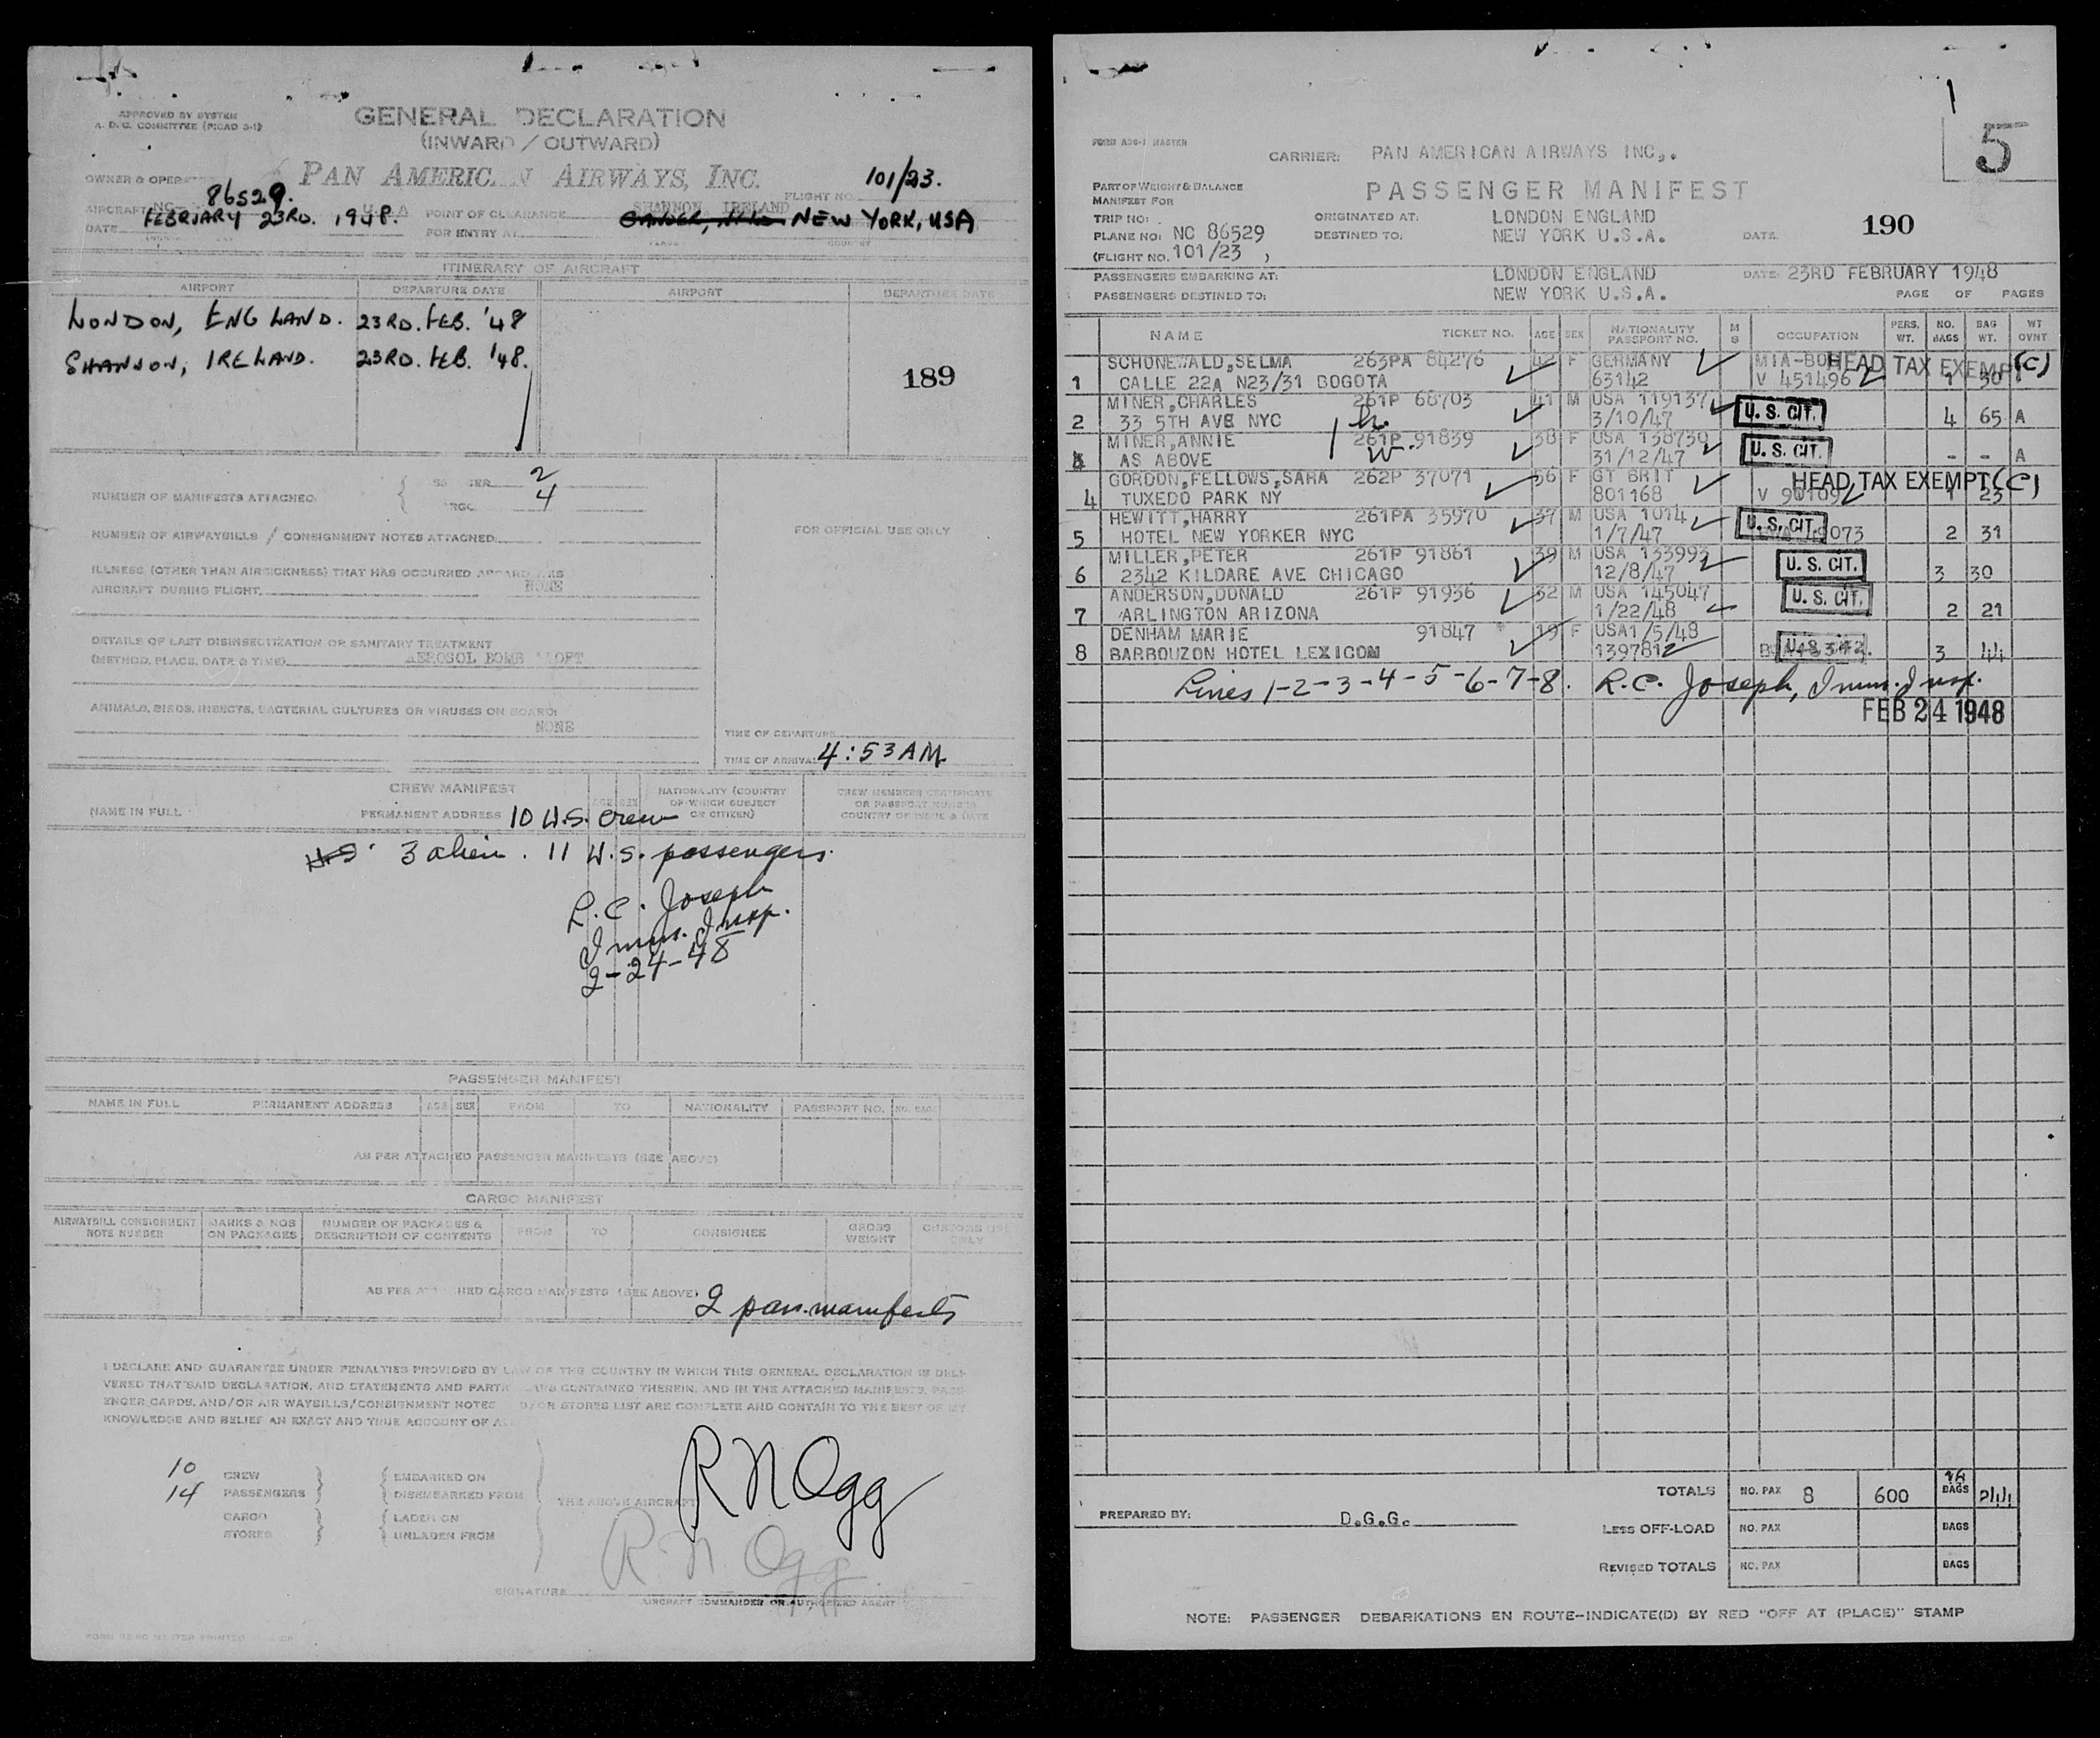 APPROVED BY SYSTEM
A. D/C. COMMITTEE (PICAO 3-1)
GENERAL DECLARATION
(INWARD / OUTWARD)
OWNER & OPER
PAN AMERIC N AIRWAYS, INC.
FLIGHT NO. 101/23.
AIRCRAFT NC- 86529.
POINT OF CLEARANCE SHANNON IRELAND
DATE FEBRUARY 23RD. 1948.
FOR ENTRY AT NEW YORK, USA
PLACE COUNTRY
ITINERARY OF AIRCRAFT
AIRPORT DEPARTURE DATE AIRPORT DEPARTURE DATE
LONDON, ENGLAND. 23RD. FEB. '48
SHANNON, IRELAND. 23RD. FEB. '48.
189
NUMBER OF MANIFESTS ATTACHED: 2
4
NUMBER OF AIRWAYBILLS / CONSIGNMENT NOTES ATTACHED
FOR OFFICIAL USE ONLY
ILLNESS (OTHER THAN AIRSICKNESS) THAT HAS OCCURRED ABOARD THIS
AIRCRAFT DURING FLIGHT. NONE
DETAILS OF LAST DISINSECTIZATION OR SANITARY TREATMENT
(METHOD, PLACE, DATE & TIME) AEROSOL BOMB ALOFT
ANIMALS, BIRDS, INSECTS, BACTERIAL CULTURES OR VIRUSES ON BOARD:
NONE
TIME OF DEPARTURE
TIME OF ARRIVAL 4:53 AM
CREW MANIFEST
NAME IN FULL PERMANENT ADDRESS AGE SEX NATIONALITY (COUNTRY OF WHICH SUBJECT OR CITIZEN) CREW MEMBERS CERTIFICATE OR PASSPORT NUMBER COUNTRY OF ISSUE & DATE
10 U.S. crew
U.S. 3 alien. 11 U.S. passengers.
R.C. Joseph
Imm. Insp.
2-24-48
PASSENGER MANIFEST
NAME IN FULL PERMANENT ADDRESS AGE SEX FROM TO NATIONALITY PASSPORT NO. NO. BAGS
AS PER ATTACHED PASSENGER MANIFESTS (SEE ABOVE)
CARGO MANIFEST
AIRWAYBILL CONSIGNMENT NOTE NUMBER MARKS & NOS ON PACKAGES NUMBER OF PACKAGES & DESCRIPTION OF CONTENTS FROM TO CONSIGNEE GROSS WEIGHT CUSTOMS USE ONLY
AS PER ATTACHED CARGO MANIFESTS (SEE ABOVE)
2 pass. manifests
I DECLARE AND GUARANTEE UNDER PENALTIES PROVIDED BY LAW OF THE COUNTRY IN WHICH THIS GENERAL DECLARATION IS DELI-
VERED THAT SAID DECLARATION, AND STATEMENTS AND PARTICULARS CONTAINED THEREIN, AND IN THE ATTACHED MANIFESTS, PASS-
ENGER CARDS, AND/OR AIR WAYBILLS/CONSIGNMENT NOTES AND/OR STORES LIST ARE COMPLETE AND CONTAIN TO THE BEST OF MY
KNOWLEDGE AND BELIEF AN EXACT AND TRUE ACCOUNT OF ALL
10 CREW EMBARKED ON
14 PASSENGERS DISEMBARKED FROM
THE ABOVE AIRCRAFT
CARGO LADEN ON
STORES UNLADEN FROM
R N Ogg
R. N. Ogg
SIGNATURE
AIRCRAFT COMMANDER OR AUTHORIZED AGENT
5
FORM ADG-1 MASTER
CARRIER: PAN AMERICAN AIRWAYS INC,.
PASSENGER MANIFEST
PART OF WEIGHT & BALANCE
MANIFEST FOR
TRIP NO:
ORIGINATED AT: LONDON ENGLAND
PLANE NO: NC 86529
DESTINED TO: NEW YORK U.S.A.
DATE: 190
(FLIGHT NO. 101/23 )
PASSENGERS EMBARKING AT: LONDON ENGLAND DATE: 23RD FEBRUARY 1948
PASSENGERS DESTINED TO: NEW YORK U.S.A. PAGE OF PAGES
NAME TICKET NO. AGE SEX NATIONALITY PASSPORT NO. M S OCCUPATION PERS. WT. NO. BAGS BAG WT. WT OVNT
SCHONEWALD,SELMA 263PA 84276 42 F GERMANY MIA-BOG HEAD TAX EXEMPT (C)
1 CALLE 22A N23/31 BOGOTA 63142 V 451496 1 30
MINER,CHARLES 261P 68703 41 M USA 119137 U. S. CIT.
2 33 5TH AVE NYC 3/10/47 4 65 A
MINER,ANNIE 261P 91839 38 F USA 138730 U. S. CIT.
3 AS ABOVE 31/12/47 - - A
GORDON,FELLOWS,SARA 262P 37071 56 F GT BRIT HEAD TAX EXEMPT (C)
4 TUXEDO PARK NY 801168 1 23
HEWITT,HARRY 261PA 35970 37 M USA 1014 U. S. CIT.
5 HOTEL NEW YORKER NYC 1/7/47 2 31
MILLER,PETER 261P 91861 39 M USA 133993 U. S. CIT.
6 2342 KILDARE AVE CHICAGO 12/8/47 3 30
ANDERSON,DONALD 261P 91936 32 M USA 145047 U. S. CIT.
7 ARLINGTON ARIZONA 1/22/48 2 21
DENHAM MARIE 91847 19 F USA1/5/48
8 BARBOUZON HOTEL LEXICOM 139781 U. S. CIT. 3 44
Lines 1-2-3-4-5-6-7-8. R.C. Joseph, Imm. Insp.
FEB 24 1948
TOTALS NO. PAX 8 600 16 BAGS 244
PREPARED BY: D.G.G.
LESS OFF-LOAD NO. PAX BAGS
REVISED TOTALS NO. PAX BAGS
NOTE: PASSENGER DEBARKATIONS EN ROUTE-INDICATE(D) BY RED "OFF AT (PLACE)" STAMP